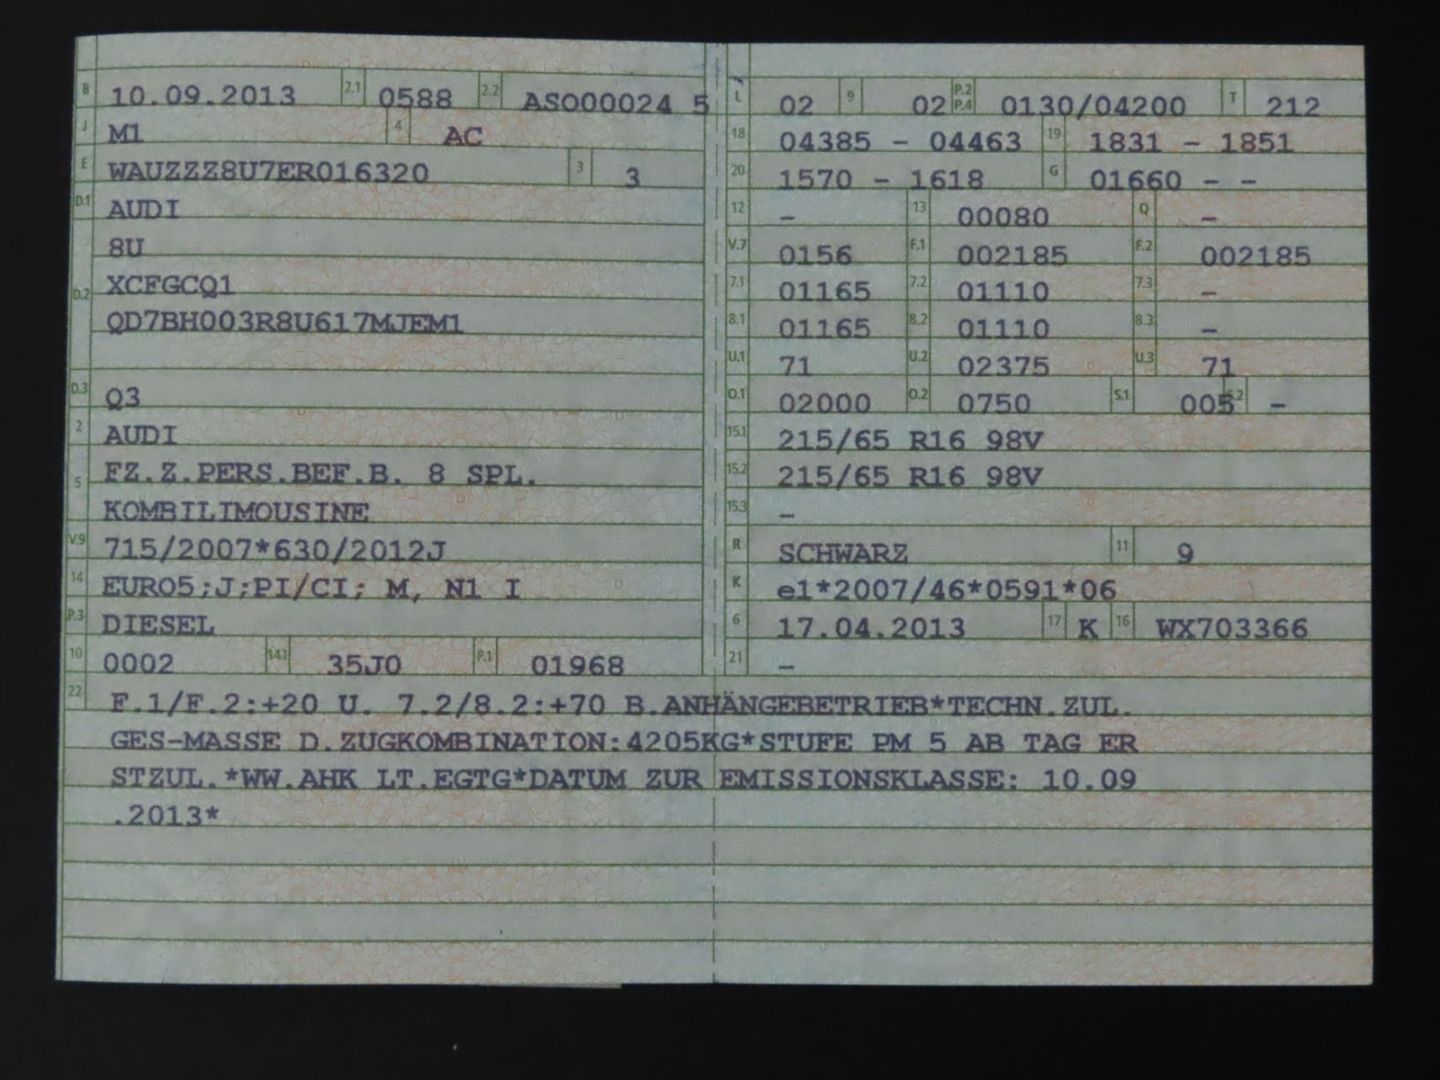 B 10.09.2013 2.1 0588 2.2 ASO00024 5
J M1 4 AC
E WAUZZZ8U7ER016320 3 3
D.1 AUDI
8U
D.2 XCFGCQ1
QD7BH003R8U617MJEM1
D.3 Q3
2 AUDI
5 FZ.Z.PERS.BEF.B. 8 SPL.
KOMBILIMOUSINE
V.9 715/2007*630/2012J
14 EURO5;J;PI/CI; M, N1 I
P.3 DIESEL
10 0002 14.1 35J0 P.1 01968
L 02 9 02 P.2 P.4 0130/04200 T 212
18 04385 - 04463 19 1831 - 1851
20 1570 - 1618 G 01660 - -
12 - 13 00080 Q -
V.7 0156 F.1 002185 F.2 002185
7.1 01165 7.2 01110 7.3 -
8.1 01165 8.2 01110 8.3 -
U.1 71 U.2 02375 U.3 71
O.1 02000 O.2 0750 S.1 005 S.2 -
15.1 215/65 R16 98V
15.2 215/65 R16 98V
15.3 -
R SCHWARZ 11 9
K e1*2007/46*0591*06
6 17.04.2013 17 K 16 WX703366
21 -
22 F.1/F.2:+20 U. 7.2/8.2:+70 B.ANHÄNGEBETRIEB*TECHN.ZUL.
GES-MASSE D.ZUGKOMBINATION:4205KG*STUFE PM 5 AB TAG ER
STZUL.*WW.AHK LT.EGTG*DATUM ZUR EMISSIONSKLASSE: 10.09
.2013*